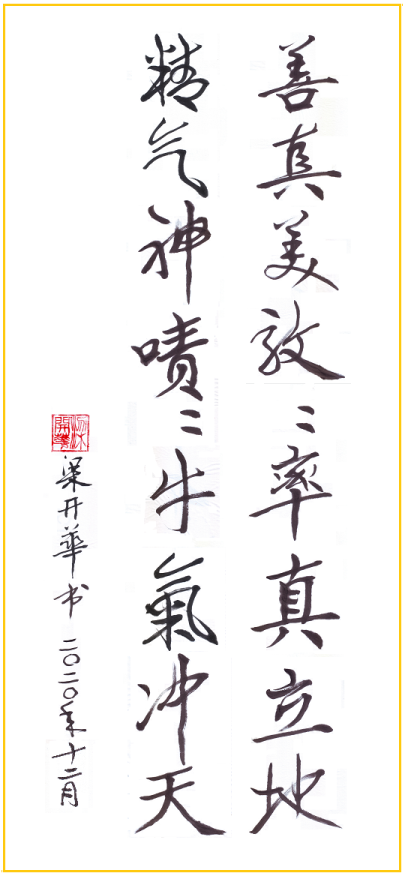 善真美〻率真立地
精气神啧〻牛氣冲天
梁开華书 二〇二〇年十二月